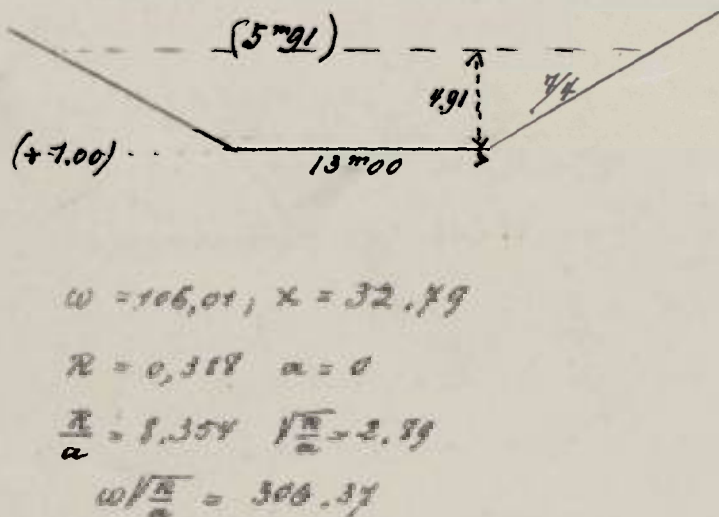 (5ᵐ91)
4.91
7/4
(+1.00)
13ᵐ00
ω = 106,01; χ = 32.79
R = 0,318 a = 0
R/a = 8.354 √R/a = 2.89
ω√R/a = 306.37